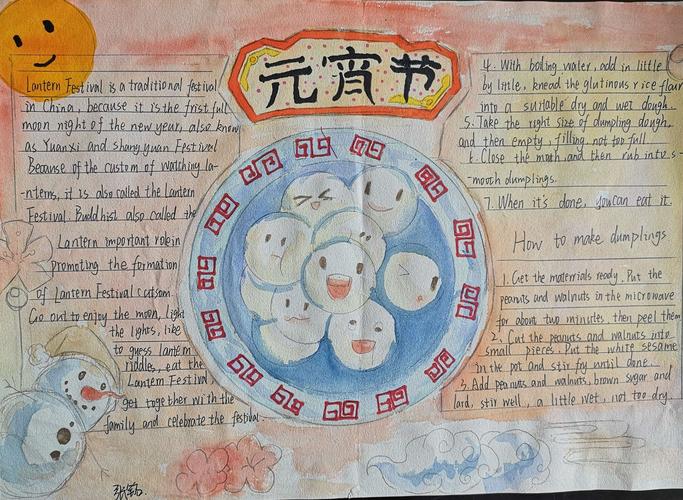 元宵节
Lantern Festival is a traditional festival
in China, because it is the frist full
moon night of the new year, also know
as Yuanxi and shangyuan Festivel
Because of the custom of watching la-
-nterns, it is also called the lantern
Festival. Buddhist also called the
Lantern important role in
promoting the formation
of Lantern Festival cutsom.
Go out to enjoy the moon, light
the lights, like
to guess lantern
riddles, eat the
Lantern Festival
get together with the
family and celebrate the festival.
4. With boling water, add in little
by little, knead the glutinous rice flour
into a suitable dry and wet dough.
5. Take the right size of dumpling dough,
and then empty, filling, not too full
6. Close the mouth, and then rub into s-
-mooth dumplings.
7. When it's done, you can eat it.
How to make dumplings
1. Get the materials ready. Put the
peanuts and walnuts in the microwave
for about two minutes then peel them
2. Cut the peanuts and walnuts into
small pieces. Put the white sesame
in the pot and stir fry until done.
3. Add peanuts and walnuts, brown sugar and
lard, stir well, a little wet, not too dry.